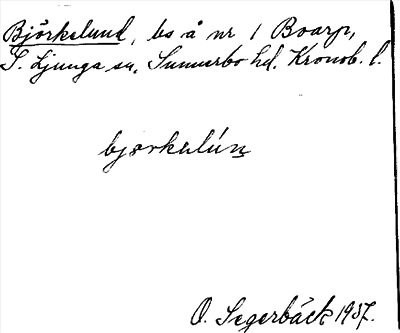 Björkelund, bs å nr 1 Boarp,
S. Ljunga sn, Sunnerbo hd. Kronob. l.
bjørkalún
O. Segerbäck 1937.